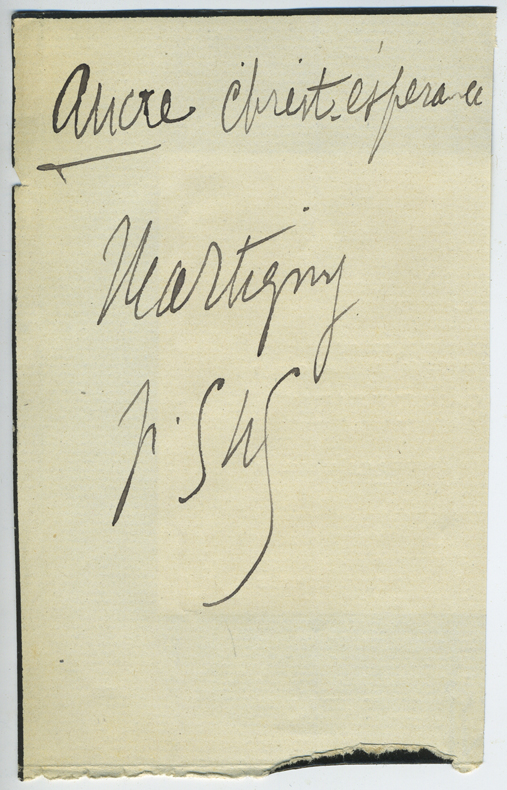 Ancre Christ. espérance
Martigny
p. 545